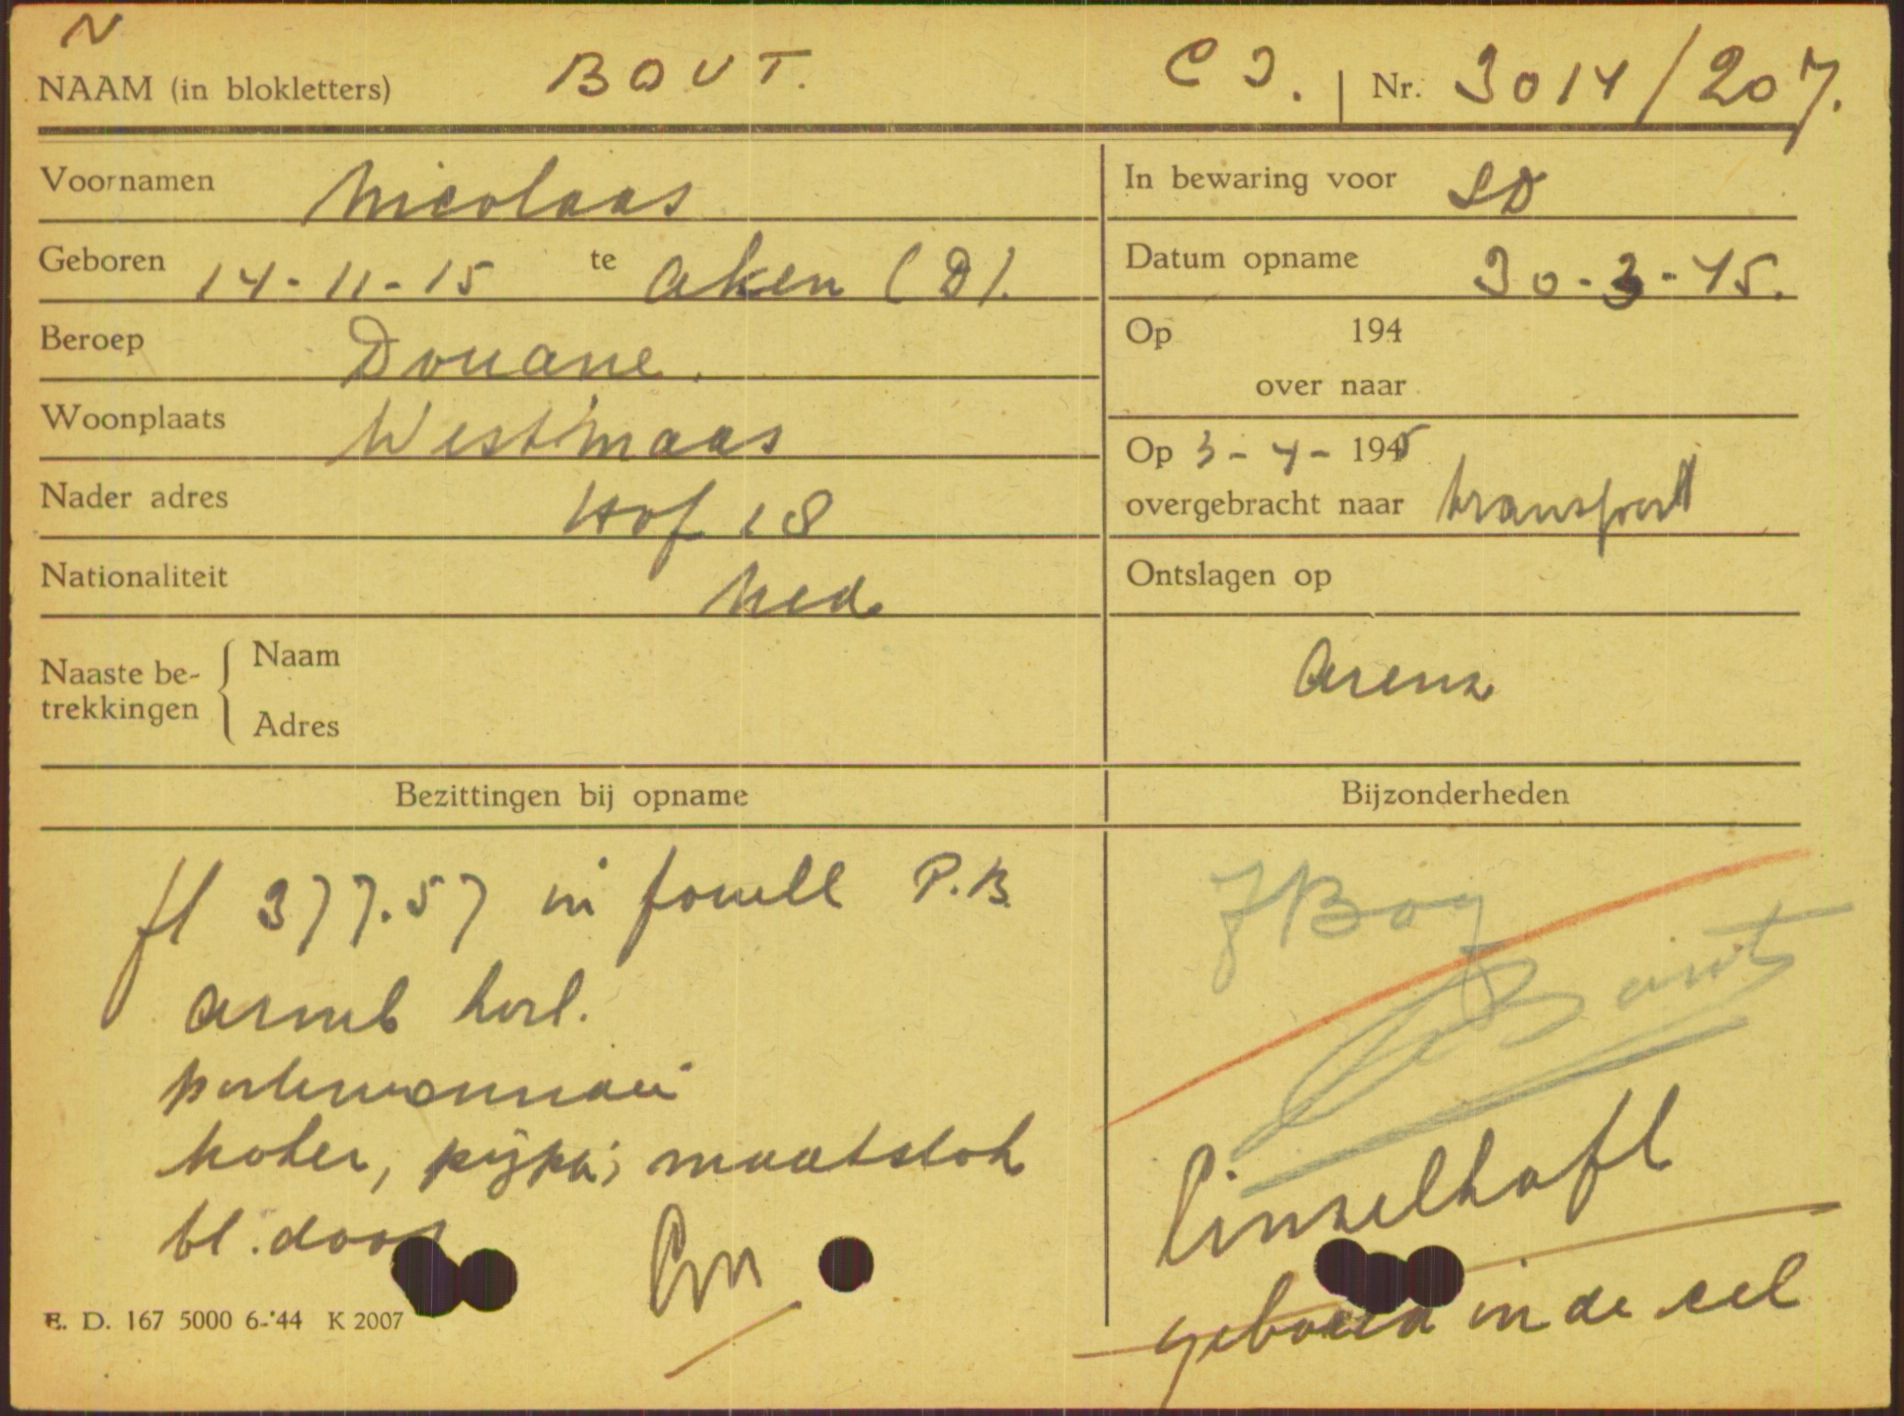 N
NAAM (in blokletters) BOUT. C I. Nr. 3014/207.
Voornamen Nicolaas
In bewaring voor SD
Geboren 14-11-15 te Aken (D).
Datum opname 30-3-45.
Beroep Douane.
Op 194
over naar
Woonplaats Westmaas
Op 3-4-1945
Nader adres Hof 18
overgebracht naar transport
Nationaliteit Ned
Ontslagen op
Naaste be-
trekkingen
Naam
Adres
Arena
Bezittingen bij opname
Bijzonderheden
fl 377.57 in fouill P.B.
armb horl.
portemonnaie
koker, pijp; maatstok
bl. doos
Bout
Einzelhaft
geboeid in de cel
E. D. 167 5000 6-'44 K 2007